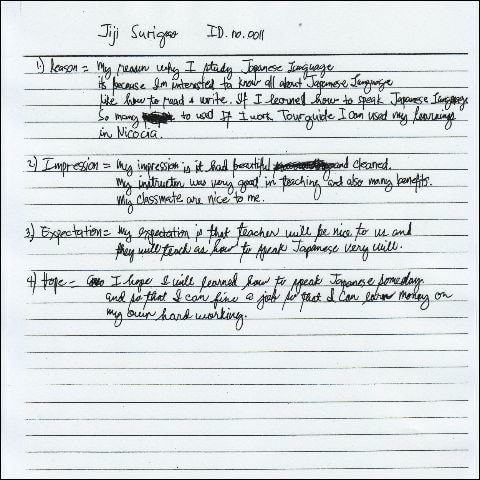 Jiji Surigao ID. no. 0011
1.) Reason = My reason why I study Japanese Language
its because I'm interested to know all about Japanese Language
like how to read & write. If I learned how to speak Japanese Language
So many to used If I work Tourguide I can used my learnings
in Nicocia.
2) Impression = My impression is it had beautiful and cleaned.
My instructor was very good in teaching and also many benefits.
My classmate are nice to me.
3) Expectation = My expectation is that teacher will be nice to us and
they will teach as how to speak Japanese very will.
4) Hope = I hope I will learned how to speak Japanese someday
and so that I can fine a job so that I can earn money on
my own hard working.